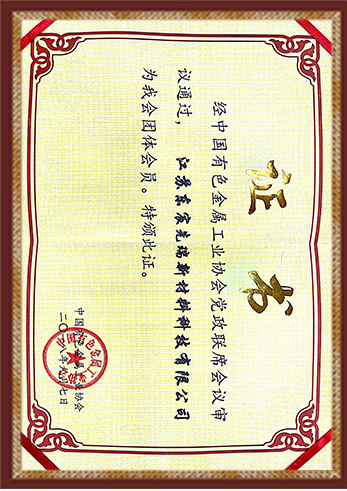 证书
经中国有色金属工业协会党政联席会议审
议通过，江苏东瑞斯材料科技有限公司
为我会团体会员。特颁此证。
中国有色金属工业协会
二〇一八年九月七日